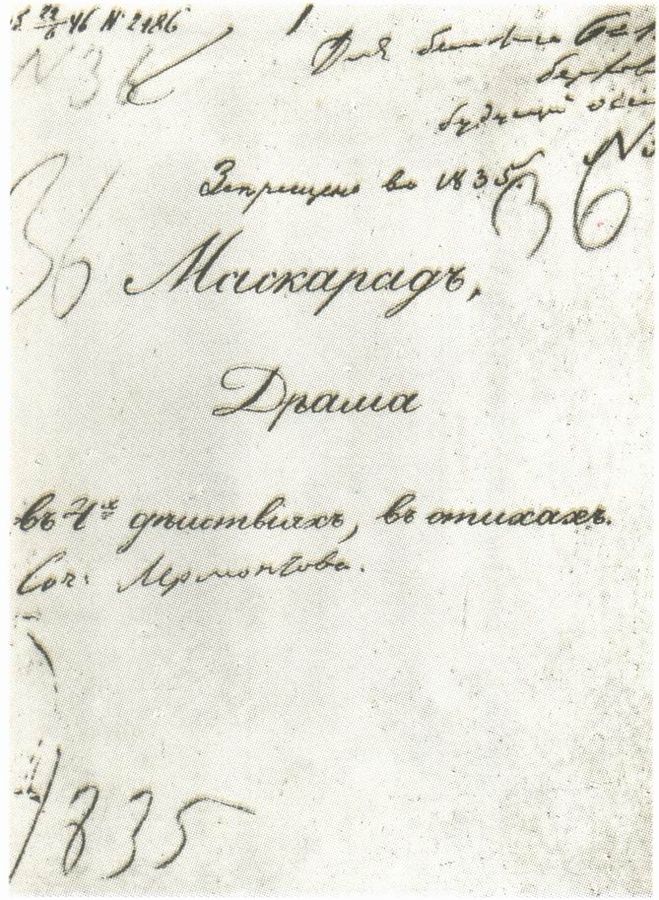 46 N 2186
Для
будущей
36
Запрещено въ 1835.
36
Маскарадъ,
Драма
въ 4х дѣйствіяхъ, въ стихахъ.
Соч: Лермонтова.
1835